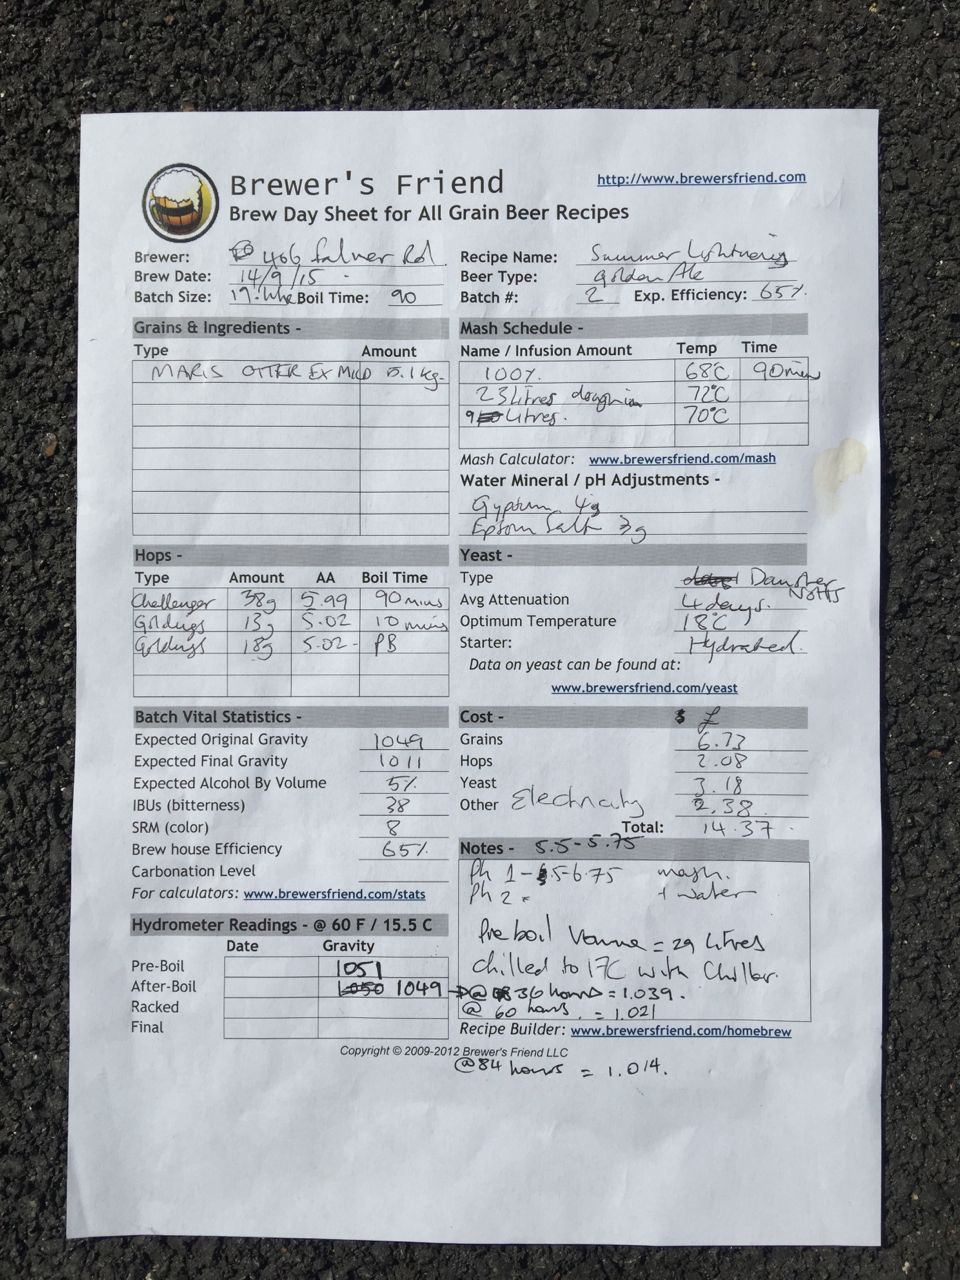 Brewer's Friend
http://www.brewersfriend.com
Brew Day Sheet for All Grain Beer Recipes
Brewer: 466 falmer Rd
Recipe Name: Summer Lightning
Brew Date: 14/9/15
Beer Type: Golden Ale
Batch Size: Boil Time: 90
Batch #: 2 Exp. Efficiency: 65%
Grains & Ingredients -
Type Amount
MARIS OTTER EX MILD 5.1kg
Mash Schedule -
Name / Infusion Amount Temp Time
100% 68°C 90mins
23 Litres doughin 72°C
9 Litres. 70°C
Mash Calculator: www.brewersfriend.com/mash
Water Mineral / pH Adjustments -
Gypsum 4g
Epsom Salt 3g
Hops -
Type Amount AA Boil Time
Challenger 38g 5.99 90 mins
Goldings 13g 5.02 10 mins
Goldings 18g 5.02 - PB
Yeast -
Type Danster Notts
Avg Attenuation 4 days.
Optimum Temperature 18°C
Starter: Hydrated.
Data on yeast can be found at:
www.brewersfriend.com/yeast
Batch Vital Statistics -
Expected Original Gravity 1049
Expected Final Gravity 1011
Expected Alcohol By Volume 5%
IBUs (bitterness) 38
SRM (color) 8
Brew house Efficiency 65%
Carbonation Level
For calculators: www.brewersfriend.com/stats
Cost - $ £
Grains 6.73
Hops 2.08
Yeast 3.18
Other Electricity 2.38
Total: 14.37
Notes - 5.5-5.75
Ph 1 - 5-6.75 mash.
Ph 2 = + water
Pre boil Volume = 29 Litres
Chilled to 17C with Chiller.
@ 36 hours = 1.039.
@ 60 hours. = 1.021
Recipe Builder: www.brewersfriend.com/homebrew
Hydrometer Readings - @ 60 F / 15.5 C
Date Gravity
Pre-Boil 1051
After-Boil 1050 1049
Racked
Final
Copyright © 2009-2012 Brewer's Friend LLC
@84 hours = 1.014.